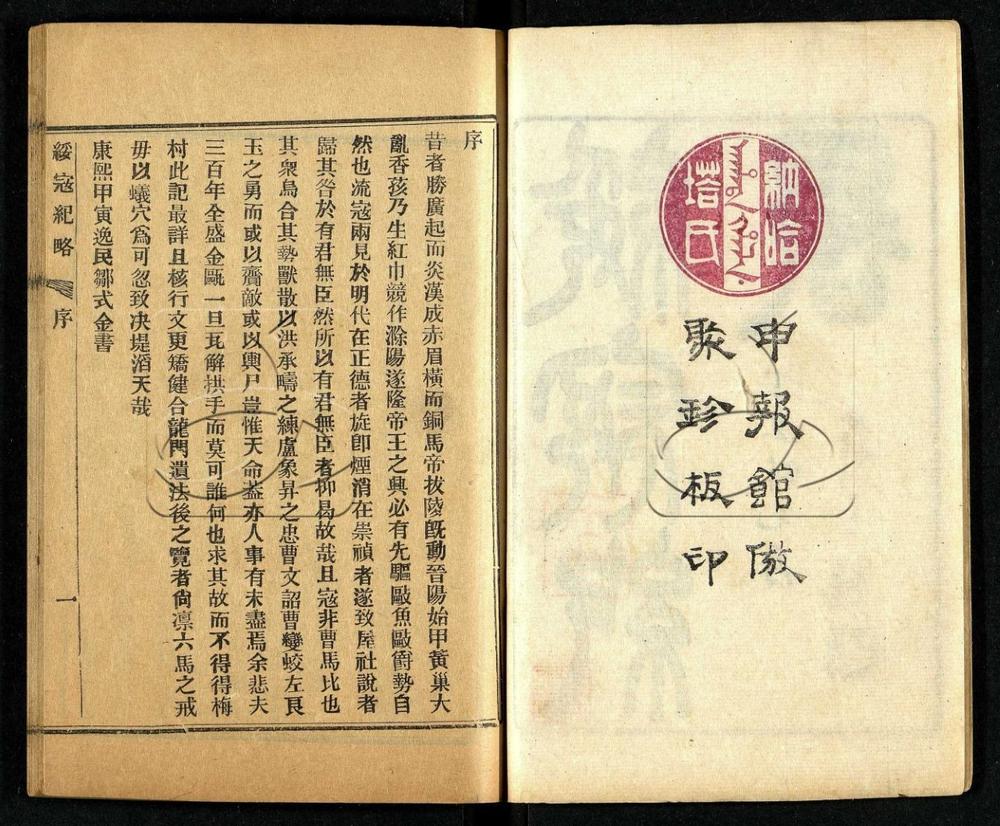 納哈
塔氏
申報館倣
聚珍板印
序
昔者勝廣起而炎漢成赤眉橫而銅馬帝拔陵旣動晉陽始甲黃巢大
亂香孩乃生紅巾競作滁陽遂隆帝王之興必有先驅敺魚敺爵勢自
然也流寇兩見於明代在正德者旋卽煙消在崇禎者遂致屋社說者
歸其咎於有君無臣然所以有君無臣者抑曷故哉且寇非曹馬比也
其衆烏合其勢獸散以洪承疇之練盧象昇之忠曹文詔曹變蛟左良
玉之勇而或以齎敵或以輿尸豈惟天命葢亦人事有未盡焉余悲夫
三百年全盛金甌一旦瓦解拱手而莫可誰何也求其故而不得得梅
村此記最詳且核行文更矯健合龍門遺法後之覽者尙凛六馬之戒
毋以蟻穴爲可忽致决堤滔天哉
康熙甲寅逸民鄒式金書
綏寇紀略 序 一